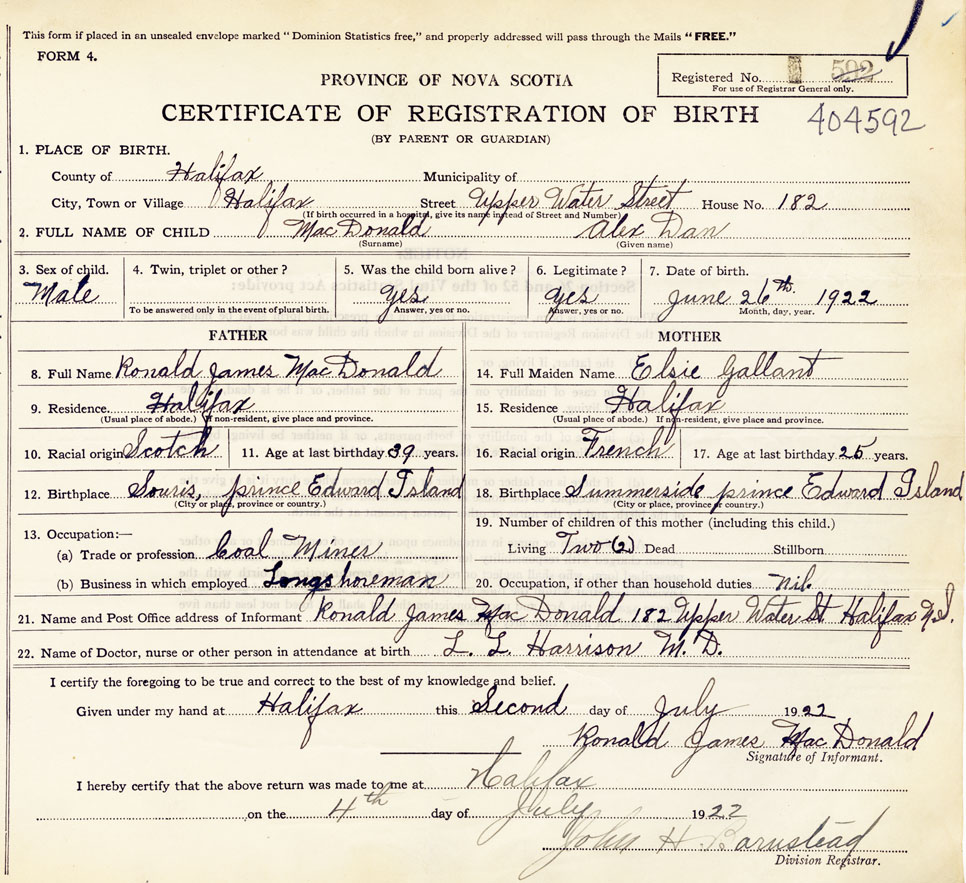 This form if placed in an unsealed envelope marked "Dominion Statistics free," and properly addressed will pass through the Mails "FREE."
FORM 4.
Registered No. 592
For use of Registrar General only.
PROVINCE OF NOVA SCOTIA
CERTIFICATE OF REGISTRATION OF BIRTH
404592
(BY PARENT OR GUARDIAN)
1. PLACE OF BIRTH.
County of Halifax Municipality of
City, Town or Village Halifax Street Upper Water Street House No. 182
(If birth occurred in a hospital, give its name instead of Street and Number)
2. FULL NAME OF CHILD MacDonald Alex Dan
(Surname) (Given name)
3. Sex of child. 4. Twin, triplet or other? 5. Was the child born alive? 6. Legitimate? 7. Date of birth.
Male yes yes June 26th 1922
To be answered only in the event of plural birth. Answer, yes or no. Answer, yes or no. Month, day, year.
FATHER MOTHER
8. Full Name Ronald James MacDonald 14. Full Maiden Name Elsie Gallant
9. Residence. Halifax 15. Residence Halifax
(Usual place of abode.) If non-resident, give place and province. (Usual place of abode.) If non-resident, give place and province.
10. Racial origin Scotch 11. Age at last birthday 39 years. 16. Racial origin French 17. Age at last birthday 25 years.
12. Birthplace Souris, prince Edward Island 18. Birthplace Summerside prince Edward Island
(City or place, province or country.) (City or place, province or country.)
13. Occupation:— 19. Number of children of this mother (including this child.)
(a) Trade or profession Coal Miner Living Two (2) Dead Stillborn
(b) Business in which employed Longshoreman 20. Occupation, if other than household duties nil.
21. Name and Post Office address of Informant Ronald James MacDonald 182 Upper Water St Halifax N.S.
22. Name of Doctor, nurse or other person in attendance at birth L. L. Harrison M. D.
I certify the foregoing to be true and correct to the best of my knowledge and belief.
Given under my hand at Halifax this Second day of July 1922
Ronald James MacDonald
Signature of Informant.
I hereby certify that the above return was made to me at Halifax
on the 4th day of July 1922
John H Barnstead
Division Registrar.